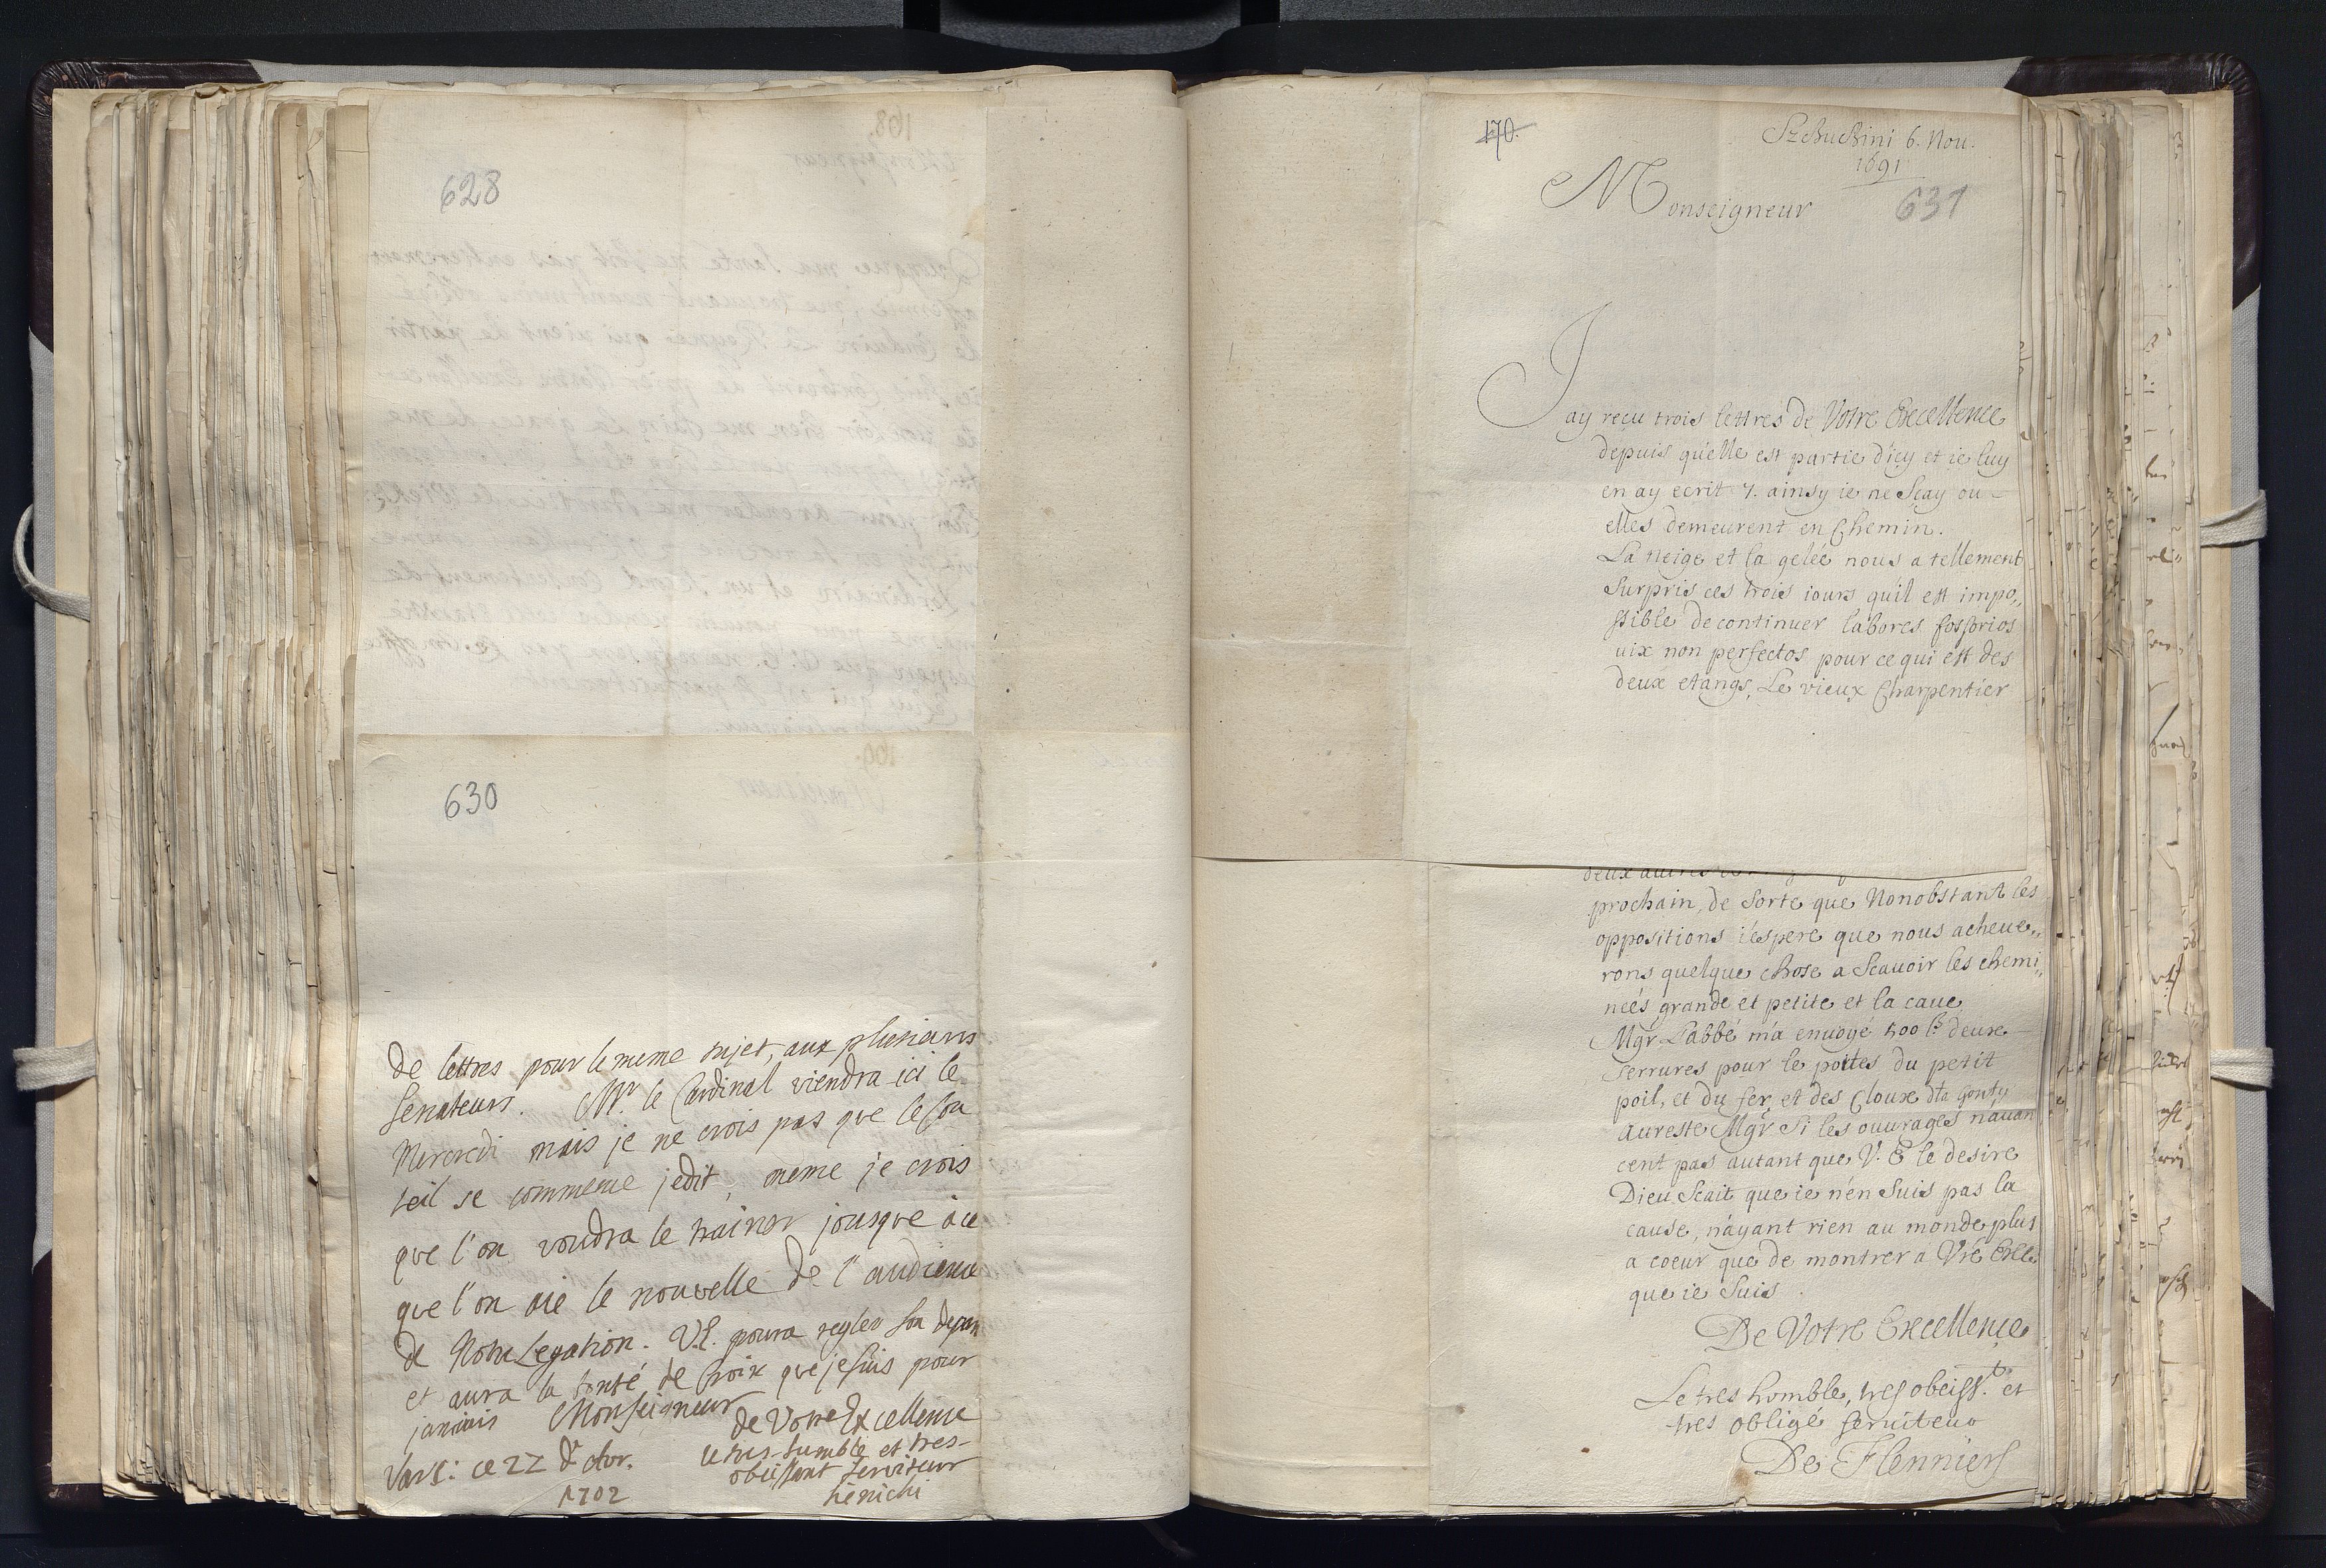 628
630
de lettres pour le meme sujet, aux plusieurs
Senateurs. Mr. le Cardinal viendra ici le
Mercredi mais je ne crois pas que le Con
seil se commence jedit, meme je crois
que l'on voudra le trainer jousque a ce
que l'on aie le nouvelle de l'audience
de Notre Legation. V.E. poura regler son
et aura la bonté de croix que je suis pour
jamais Monseigneur
de Votre Excellence
le tres-humble et tres-
obeissant serviteur
Vars: ce 22
1702
170.
6. Nou.
1691
631
Monseigneur
Jay reçu trois lettres de Votre Excellence
depuis qu'elle est partie d'icy et ie luy
en ay ecrit 7. ainsy ie ne Scay ou
elles demeurent en Chemin.
La neige et la gelée nous a tellement
Surpris ces trois iours quil est impo,,
ssible de continuer labores fossorios
uix non perfectos pour ce qui est des
deux etangs, Le vieux Charpentier
prochain, de Sorte que Nonobstant les
oppositions i'espere que nous acheue,,
rons quelque chose a Scauoir les chemi,,
neés grande et petite et la caue
Mgr L'abbé m'a enuoyé
Serrures pour le portes du petit
poil, et du fer, et des Cloux
aureste Mgr Si les ouurages n'auan
cent pas autant que V. E le desire
Dieu Scait que ie n'en Suis pas la
cause, n'ayant rien au monde plus
a coeur que de montrer a Vre Exlle
que ie Suis
De Votre Excellence
Le tres humble, tres obeisst. et
tres obligé seruiteur
De Flenniers